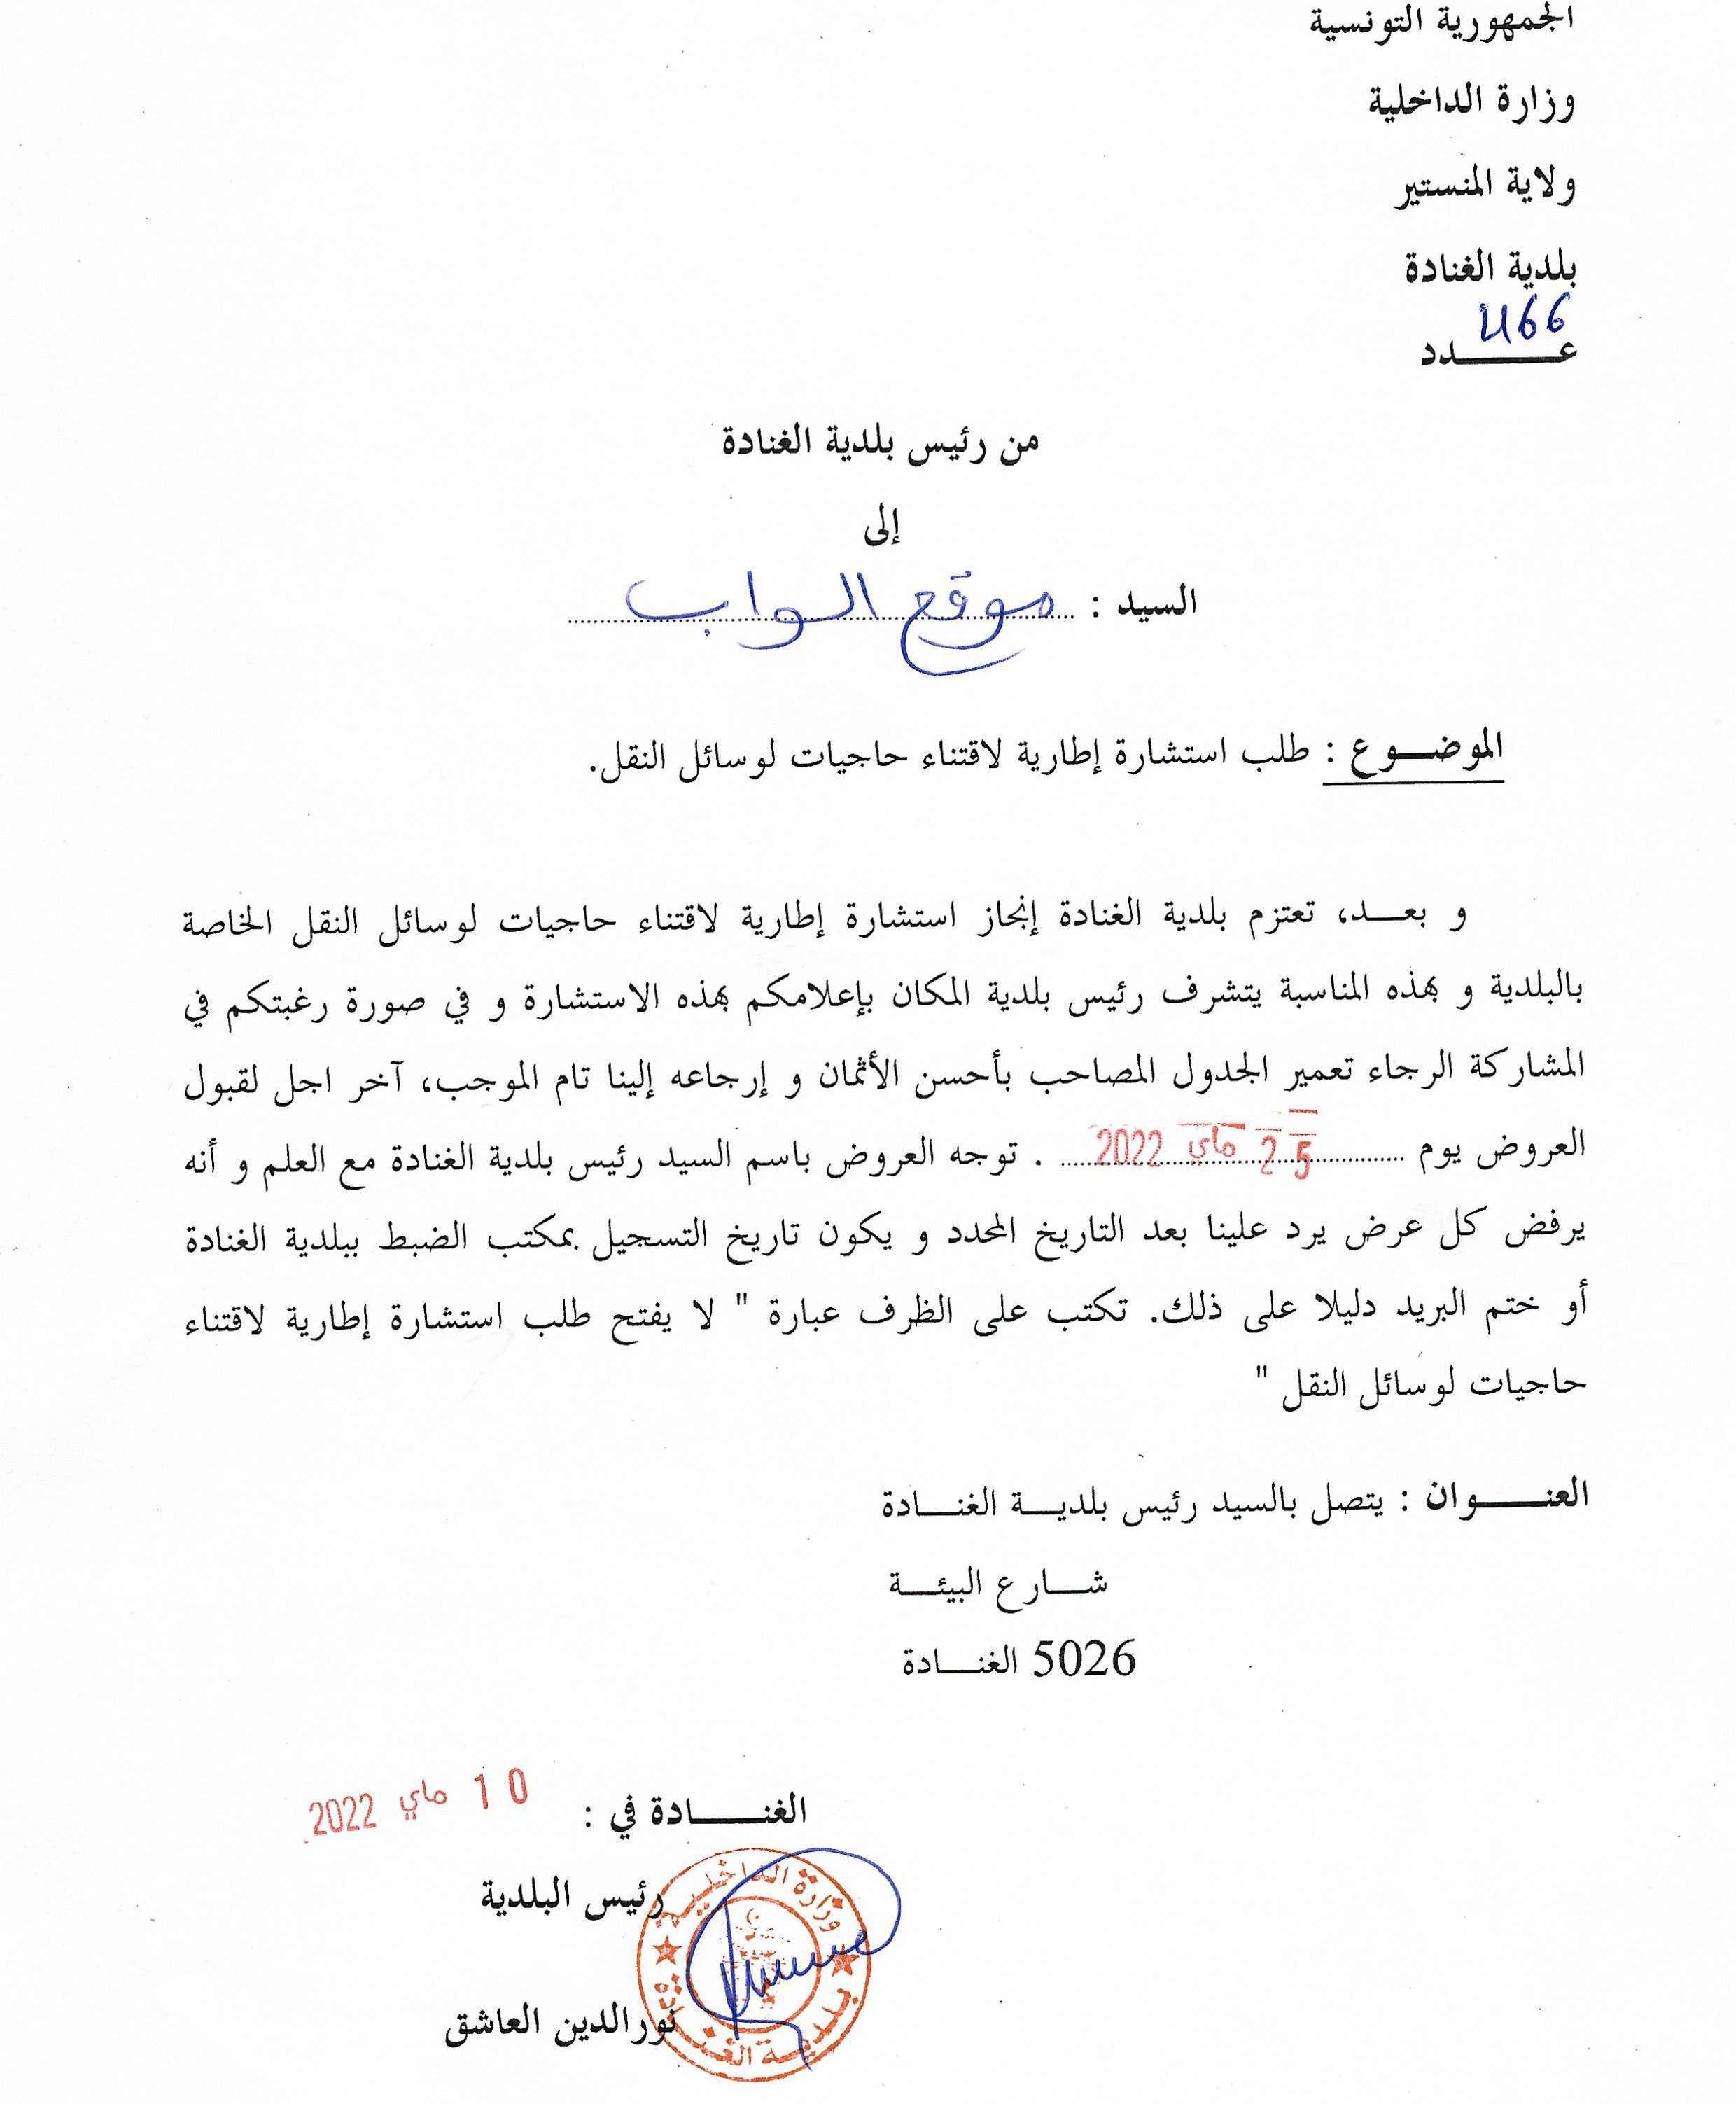 الجمهورية التونسية
وزارة الداخلية
ولاية المنستير
بلدية الغنادة
466
عـــدد
من رئيس بلدية الغنادة
إلى
السيد : موقع الواب
الموضـــوع : طلب استشارة إطارية لاقتناء حاجيات لوسائل النقل.
و بعـــد، تعتزم بلدية الغنادة إنجاز استشارة إطارية لاقتناء حاجيات لوسائل النقل الخاصة
بالبلدية و بهذه المناسبة يتشرف رئيس بلدية المكان بإعلامكم بهذه الاستشارة و في صورة رغبتكم في
المشاركة الرجاء تعمير الجدول المصاحب بأحسن الأثمان و إرجاعه إلينا تام الموجب، آخر اجل لقبول
العروض يوم 25 ماي 2022 . توجه العروض باسم السيد رئيس بلدية الغنادة مع العلم و أنه
يرفض كل عرض يرد علينا بعد التاريخ المحدد و يكون تاريخ التسجيل بمكتب الضبط ببلدية الغنادة
أو ختم البريد دليلا على ذلك. تكتب على الظرف عبارة " لا يفتح طلب استشارة إطارية لاقتناء
حاجيات لوسائل النقل "
العنـــوان : يتصل بالسيد رئيس بلديـــة الغنـــادة
شـــارع البيئـــة
5026 الغنـــادة
الغنـــادة في : 10 ماي 2022
رئيس البلدية
وزارة الداخلية
بلدية الغنادة
نورالدين العاشق